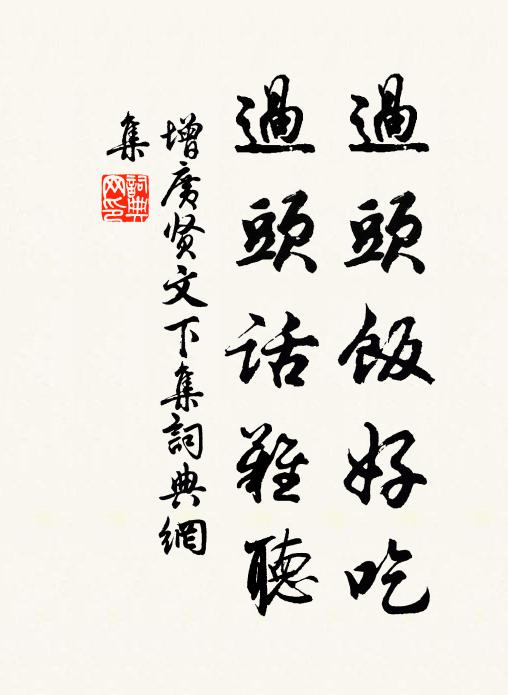 過頭飯好吃
過頭話難聽
增廣贤文下集詞典網
集
詞典网印